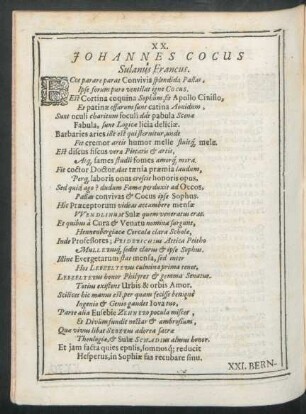 XX.
JOHANNES COCUS
Sulanus Francus.
ECce parare paras Convivia splendida Pastor,
Ipse forum puro ventilat igne Cocus.
Est Cortina coquina Sophûm, sit Apollo
Et patinæ essarum sunt catina
Sunt oculi charitum foculi dic pabula Scena
Fabula, sunt Logica licia deliciæ.
Barbaries aries iste est qui sternitur, unde
Fit cremor artis humor melle fluitq́; mele.
Est discus fiscus vera Pietatis & artis,
Arg, fames studii fomes amorq́; mera.
Fit coctor Doctor, dat tænia præmia laudum,
Perg, laboris onus crescit honoris opus.
Sed quid ago? dudum Fama perduxit ad Occon.
Pastor convivas & Cocus ipse Sophus.
His Præceptorum vidi as accumbere mensæ
VVENDLINUM Sulæ quem veneratus eras.
Et quibus à Cura & Venatu nomina surgunt,
Hennenbergiacæ Cercala clara Schola,
Inde Professores; FRIDERICHUM Attica Peitho
MOLLERUMq́; sedet clarus & ipse Sophus.
Hinc Evergetarum stat mensa, sed inter
His LERFELTERI culmina prima tenet,
LERFELTERI honor Philyres & gemma Senatus,
Totius existens Urbis & orbis Amor.
Scilicet hic manus est, per quam fecisse benignè
Ingenio & Genio gaudet Iuvatus,
Parte alia Eusebie ZEHNERO pocula mistat,
Et Divûm fundit nectar & ambrosiam,
Quæ vivens libat SEBERI adorea sacræ
Theologiæ, & Sulæ SCHADIUS almus honor.
Et jam facta quies epulis, somnosq́; reducit
Hesperus, in Sophiæ fas recubare sinu.
XXI. BERN-